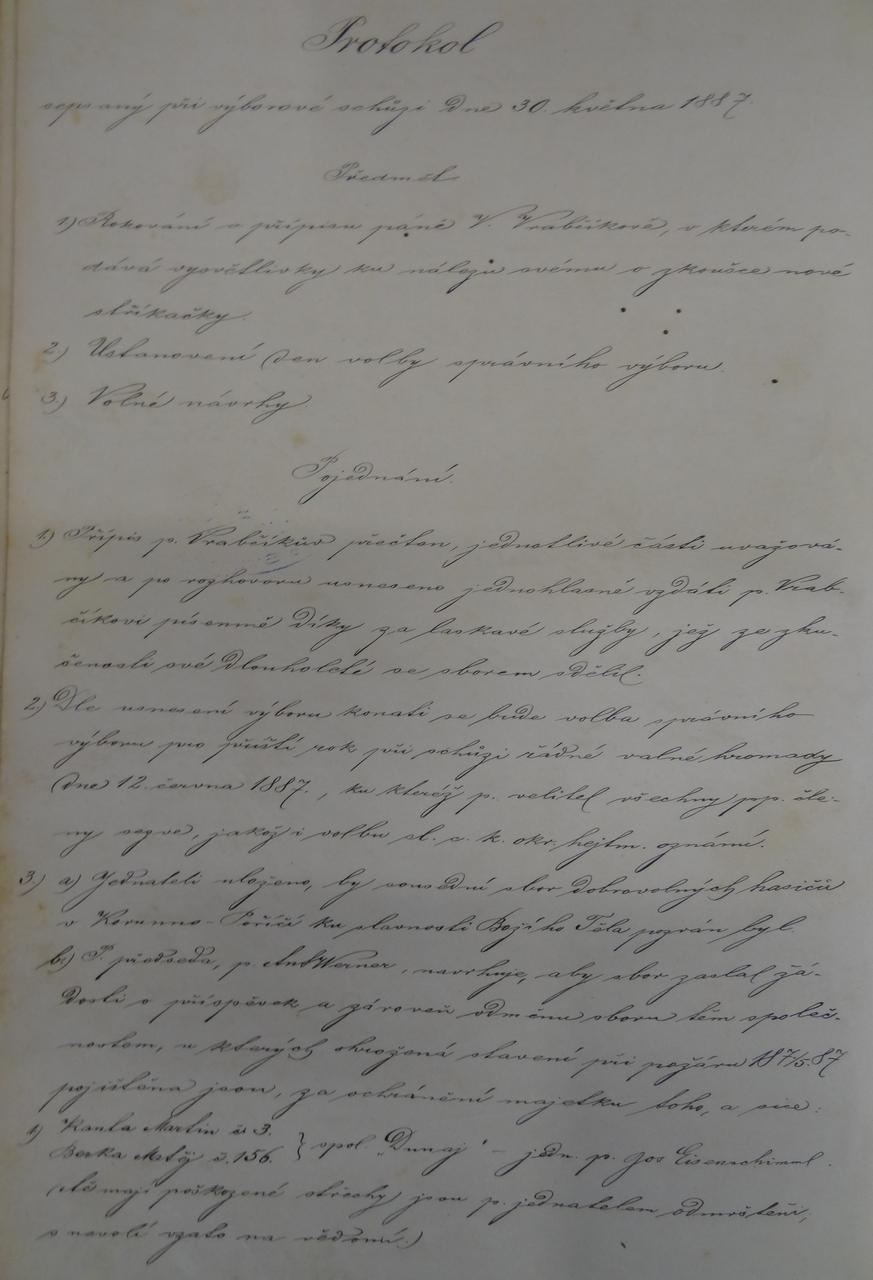 Protokol
sepsaný při výborové schůzi dne 30. května 1887.
Předmět
1) Rokování o přípisu páně V. Vrabčíkově, v kterém po-
dává vysvětlivky ku nálezu svému o zkoušce nové
stříkačky.
2.) Ustanovení den volby správního výboru.
3.) Volné návrhy.
Pojednání.
1.) Přípis p. Vrabčíkův přečten, jednotlivé části uvažová-
ny a po rozhovoru usneseno jednohlasně vzdáti p. Vrab-
číkovi písemně díky za laskavé služby, jež ze zku-
šenosti své dlouholeté se sborem sdělil.
2.) Dle usnesení výboru konati se bude volba správního
výboru pro příští rok při schůzi řádné valné hromady
dne 12. června 1887., ku kteréž p. velitel všechny pp. čle-
ny sezve, jakož i volbu sl. c. k. okr. hejtm. oznámí.
3.) a) Jednateli uloženo, by sousední sbor dobrovolných hasičů
v Korunno-Poříčí ku slavnosti Božího Těla pozván byl.
b.) P. předseda, p. Ant Werner, navrhuje, aby sbor zaslal žá-
dosti o příspěvek a zároveň odměnu sboru těm společ-
nostem, u kterých ohrožená stavení při požáru 187/5.87
pojištěna jsou, za ochránění majetku toho, a sice:
1) Kanta Martin č. 3.
Berka Matěj č. 156. } spol. „Dunaj" – jedn. p. Jos Eisenschiml.
(tě mají poškozené střechy) jsou p. jednatelem
vzato na vědomí.)